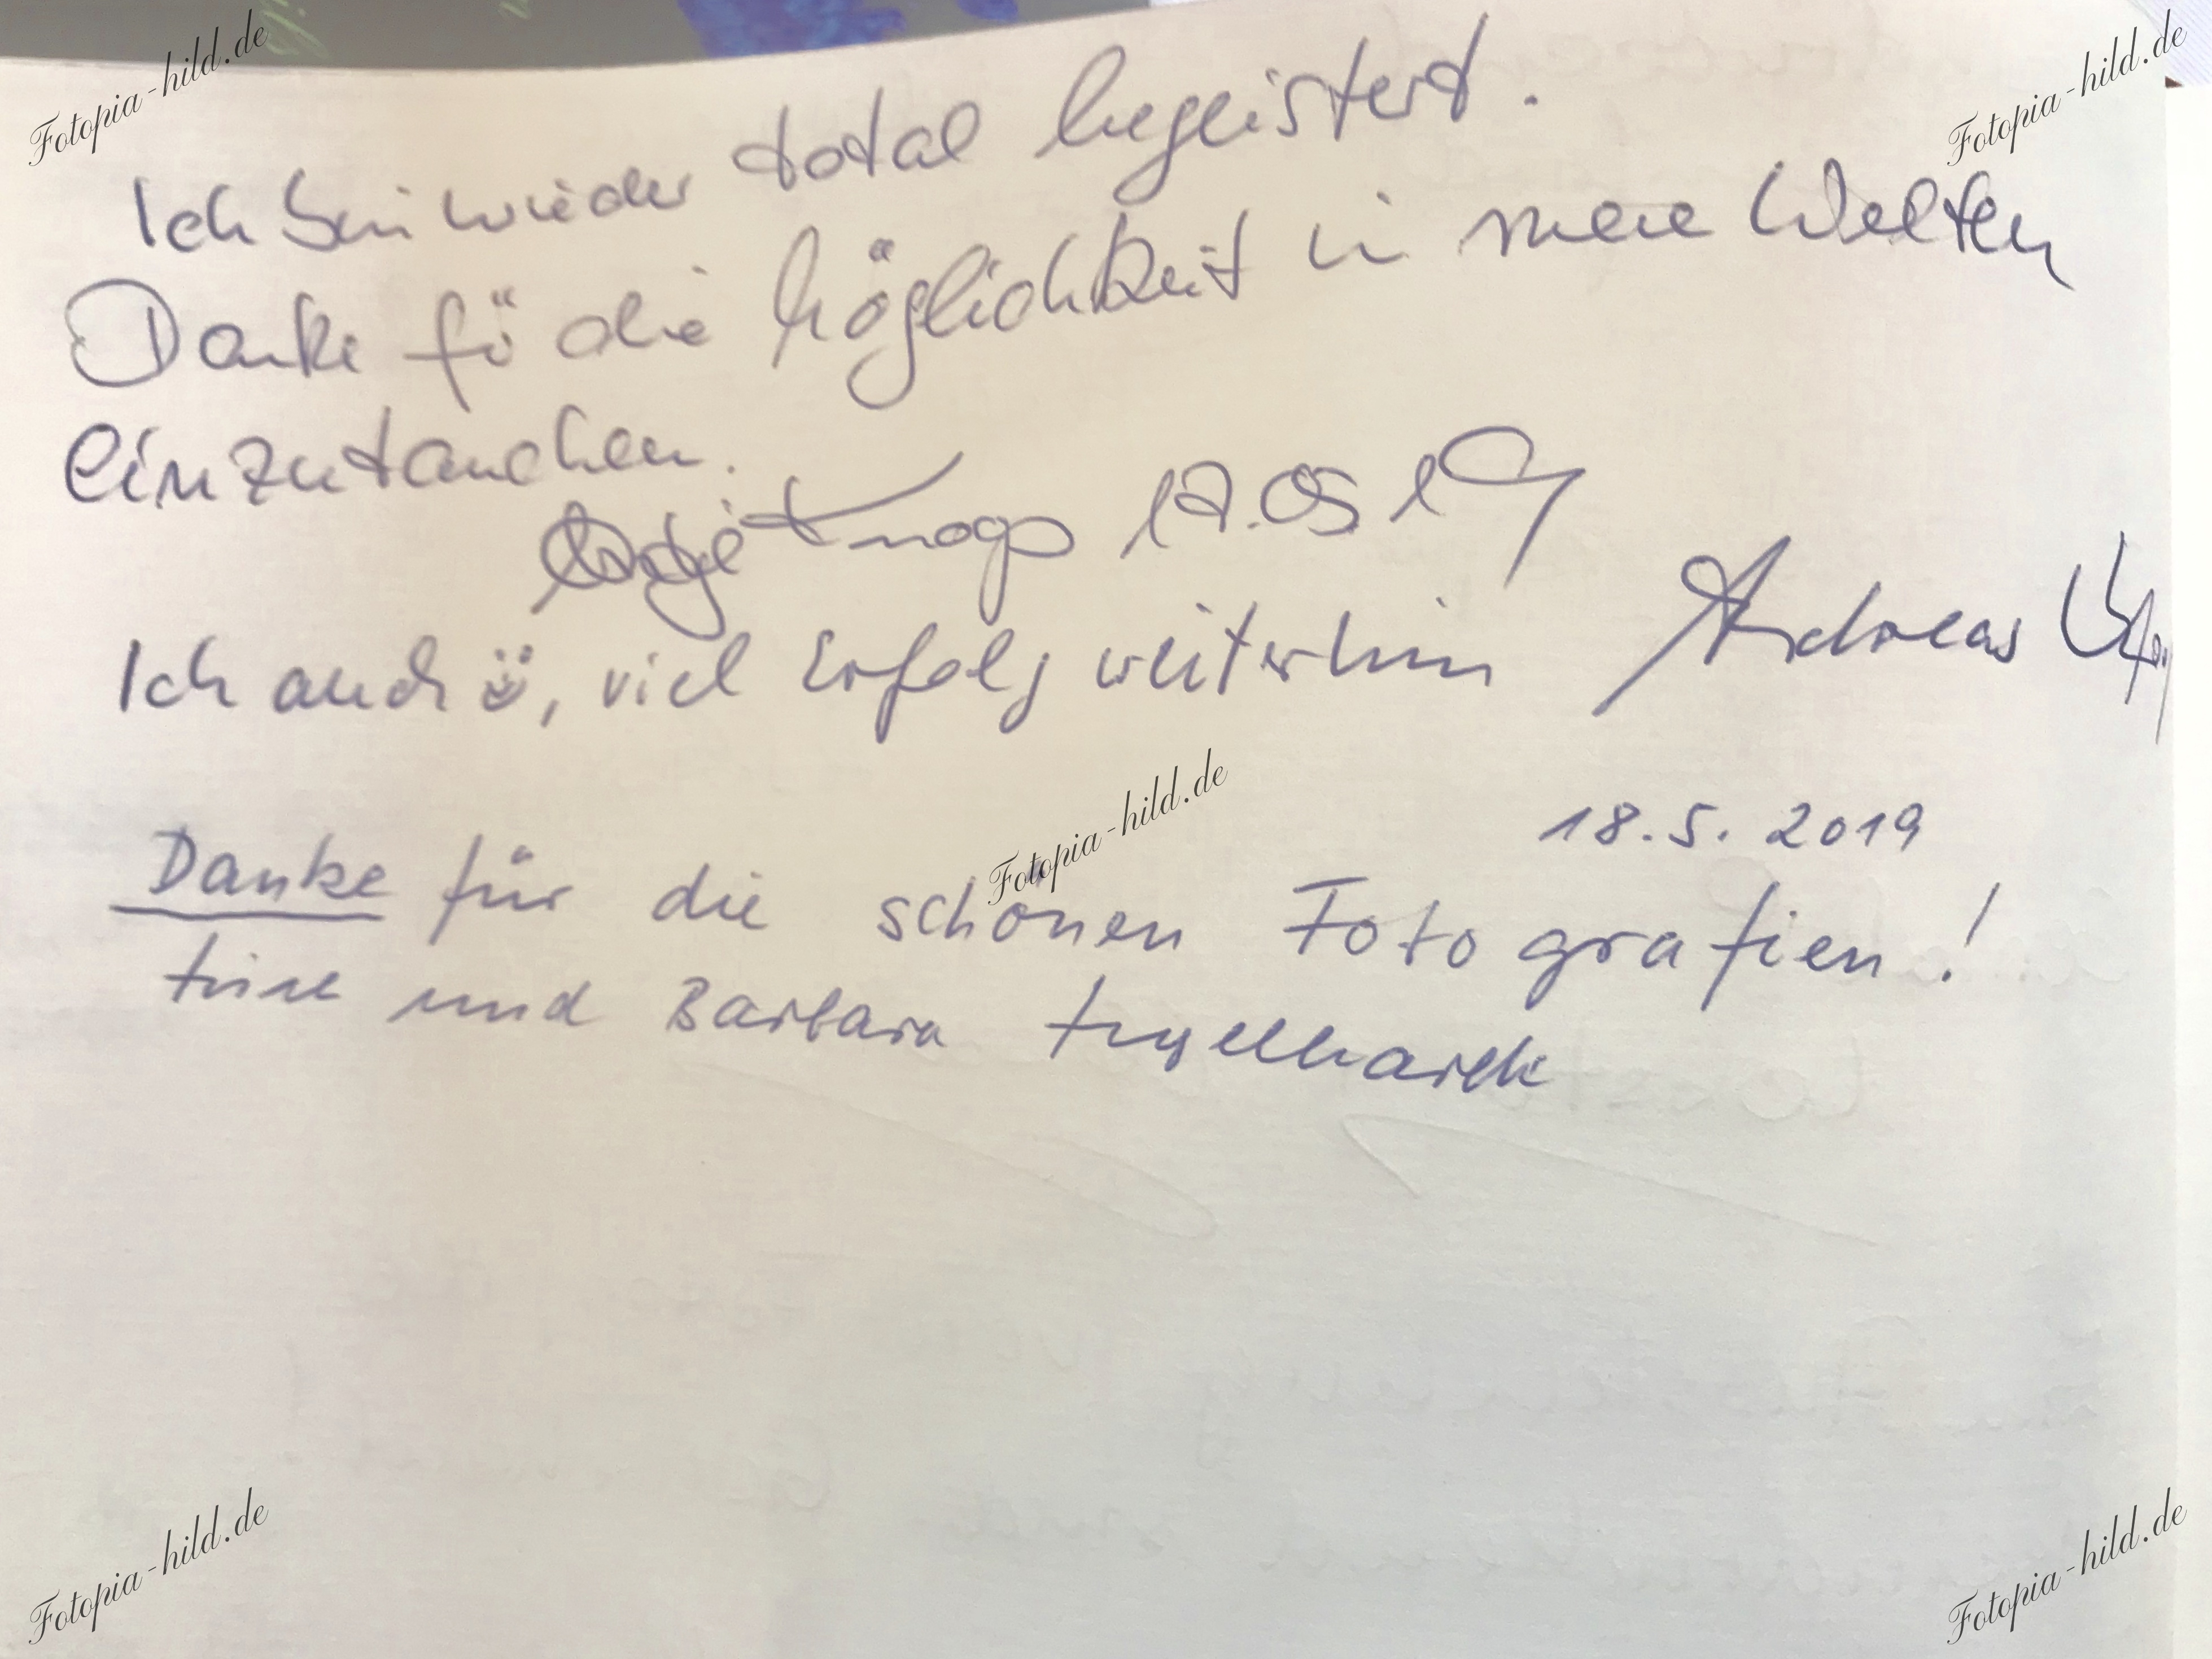 Fotopia-hild.de
Fotopia-hild.de
Ich bin wieder total begeistert.
Danke fü die Möglichkeit in neue Welten
einzutauchen.
17.05.19
Ich auch, viel Erfolg weiterhin Andreas
Fotopia-hild.de
18.5.2019
Danke für die schönen Fotografien!
und Barbara
Fotopia-hild.de
Fotopia-hild.de